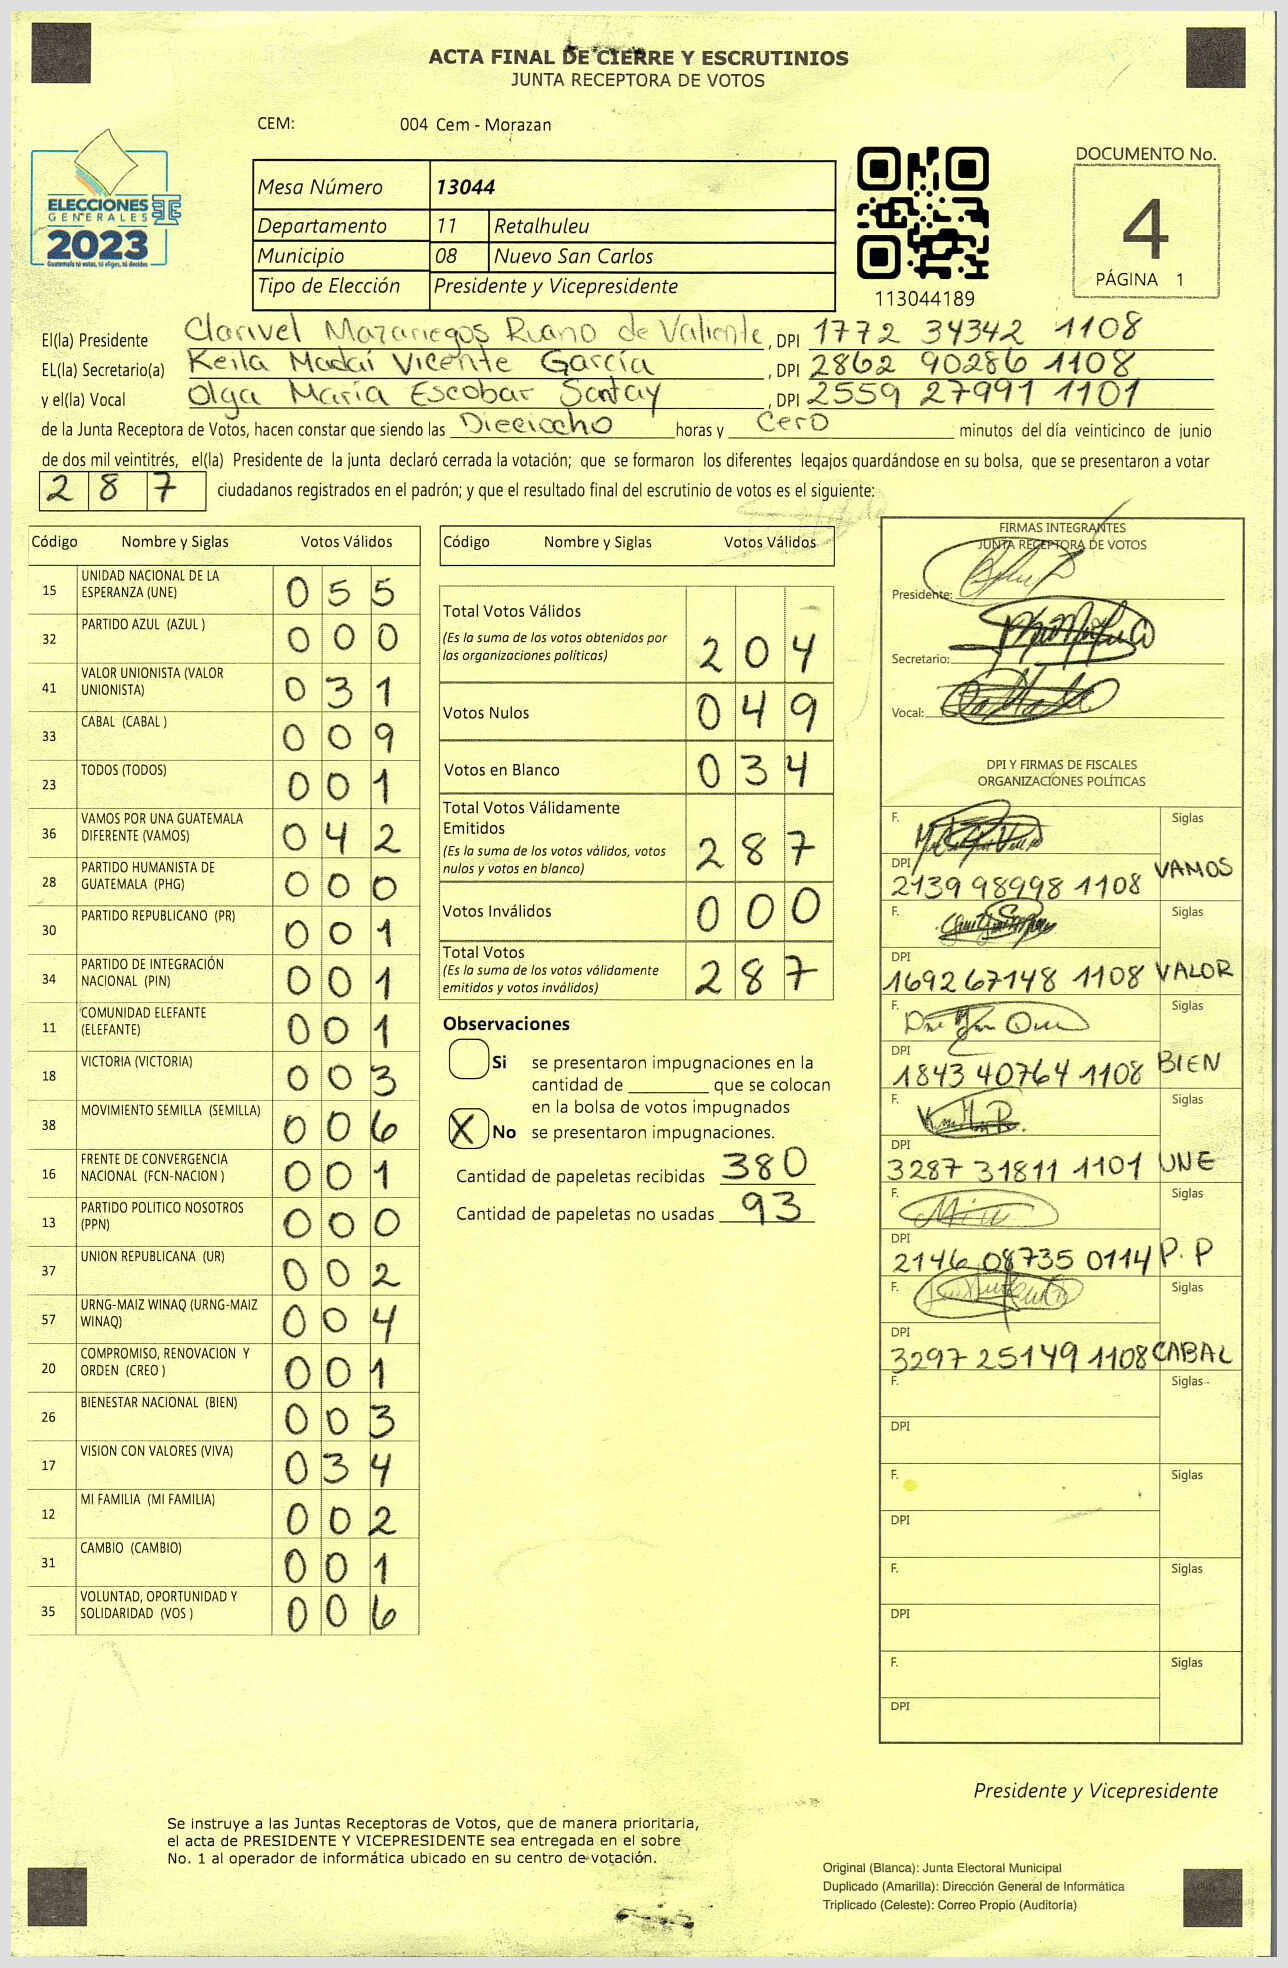 ACTA FINAL DE CIERRE Y ESCRUTINIOS
JUNTA RECEPTORA DE VOTOS
CEM: 004 Cem - Morazan
ELECCIONES
GENERALES
2023
Guatemala tú votas, tú eliges, tú decides
Mesa Número 13044
Departamento 11 Retalhuleu
Municipio 08 Nuevo San Carlos
Tipo de Elección Presidente y Vicepresidente
113044189
DOCUMENTO No.
4
PÁGINA 1
El(la) Presidente Clarivel Mazariegos Ruano de Valiente, DPI 1772 34342 1108
EL(la) Secretario(a) Keila Madaí Vicente García, DPI 2862 90286 1108
y el(la) Vocal Olga María Escobar Sontay, DPI 2559 27991 1101
de la Junta Receptora de Votos, hacen constar que siendo las Dieciocho horas y Cero minutos del día veinticinco de junio
de dos mil veintitrés, el(la) Presidente de la junta declaró cerrada la votación; que se formaron los diferentes legajos quardándose en su bolsa, que se presentaron a votar
287 ciudadanos registrados en el padrón; y que el resultado final del escrutinio de votos es el siguiente:
Código Nombre y Siglas Votos Válidos
15 UNIDAD NACIONAL DE LA
ESPERANZA (UNE) 055
32 PARTIDO AZUL (AZUL ) 000
41 VALOR UNIONISTA (VALOR
UNIONISTA) 031
33 CABAL (CABAL ) 009
23 TODOS (TODOS) 001
36 VAMOS POR UNA GUATEMALA
DIFERENTE (VAMOS) 042
28 PARTIDO HUMANISTA DE
GUATEMALA (PHG) 000
30 PARTIDO REPUBLICANO (PR) 001
34 PARTIDO DE INTEGRACIÓN
NACIONAL (PIN) 001
11 COMUNIDAD ELEFANTE
(ELEFANTE) 001
18 VICTORIA (VICTORIA) 003
38 MOVIMIENTO SEMILLA (SEMILLA) 006
16 FRENTE DE CONVERGENCIA
NACIONAL (FCN-NACION ) 001
13 PARTIDO POLITICO NOSOTROS
(PPN) 000
37 UNION REPUBLICANA (UR) 002
57 URNG-MAIZ WINAQ (URNG-MAIZ
WINAQ) 004
20 COMPROMISO, RENOVACION Y
ORDEN (CREO ) 001
26 BIENESTAR NACIONAL (BIEN) 003
17 VISION CON VALORES (VIVA) 034
12 MI FAMILIA (MI FAMILIA) 002
31 CAMBIO (CAMBIO) 001
35 VOLUNTAD, OPORTUNIDAD Y
SOLIDARIDAD (VOS ) 006
Código Nombre y Siglas Votos Válidos
Total Votos Válidos
(Es la suma de los votos obtenidos por
las organizaciones políticas) 204
Votos Nulos 049
Votos en Blanco 034
Total Votos Válidamente
Emitidos
(Es la suma de los votos válidos, votos
nulos y votos en blanco) 287
Votos Inválidos 000
Total Votos
(Es la suma de los votos válidamente
emitidos y votos inválidos) 287
Observaciones
Si se presentaron impugnaciones en la
cantidad de ________ que se colocan
en la bolsa de votos impugnados
X No se presentaron impugnaciones.
Cantidad de papeletas recibidas 380
Cantidad de papeletas no usadas 93
FIRMAS INTEGRANTES
JUNTA RECEPTORA DE VOTOS
Presidente:
Secretario:
Vocal:
DPI Y FIRMAS DE FISCALES
ORGANIZACIONES POLÍTICAS
F. Siglas
DPI
2139 98998 1108 VAMOS
F. Siglas
DPI
1692 67148 1108 VALOR
F. Siglas
DPI
1843 40764 1108 BIEN
F. Siglas
DPI
3287 31811 1101 UNE
F. Siglas
DPI
2146 08735 0114 P.P
F. Siglas
DPI
3297 25149 1108 CABAL
F. Siglas
DPI
F. Siglas
DPI
F. Siglas
DPI
F. Siglas
DPI
Presidente y Vicepresidente
Se instruye a las Juntas Receptoras de Votos, que de manera prioritaria,
el acta de PRESIDENTE Y VICEPRESIDENTE sea entregada en el sobre
No. 1 al operador de informática ubicado en su centro de votación.
Original (Blanca): Junta Electoral Municipal
Duplicado (Amarilla): Dirección General de Informática
Triplicado (Celeste): Correo Propio (Auditoría)